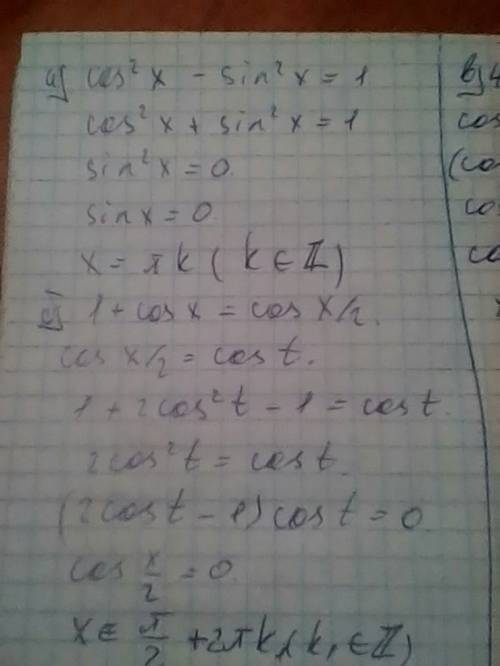 а) cos²x - sin²x = 1
cos²x + sin²x = 1
sin²x = 0
sin x = 0
x = πk (k ∈ ℤ)
1 + cos x = cos x/2.
cos x/2 = cos t.
1 + 2cos²t - 1 = cos t.
2cos²t = cos t.
(2cos t - 1) cos t = 0
cos x/2 = 0
x ∈ π/2 + 2πk, (k, ∈ ℤ)
в) 4
cos
(co
co
co